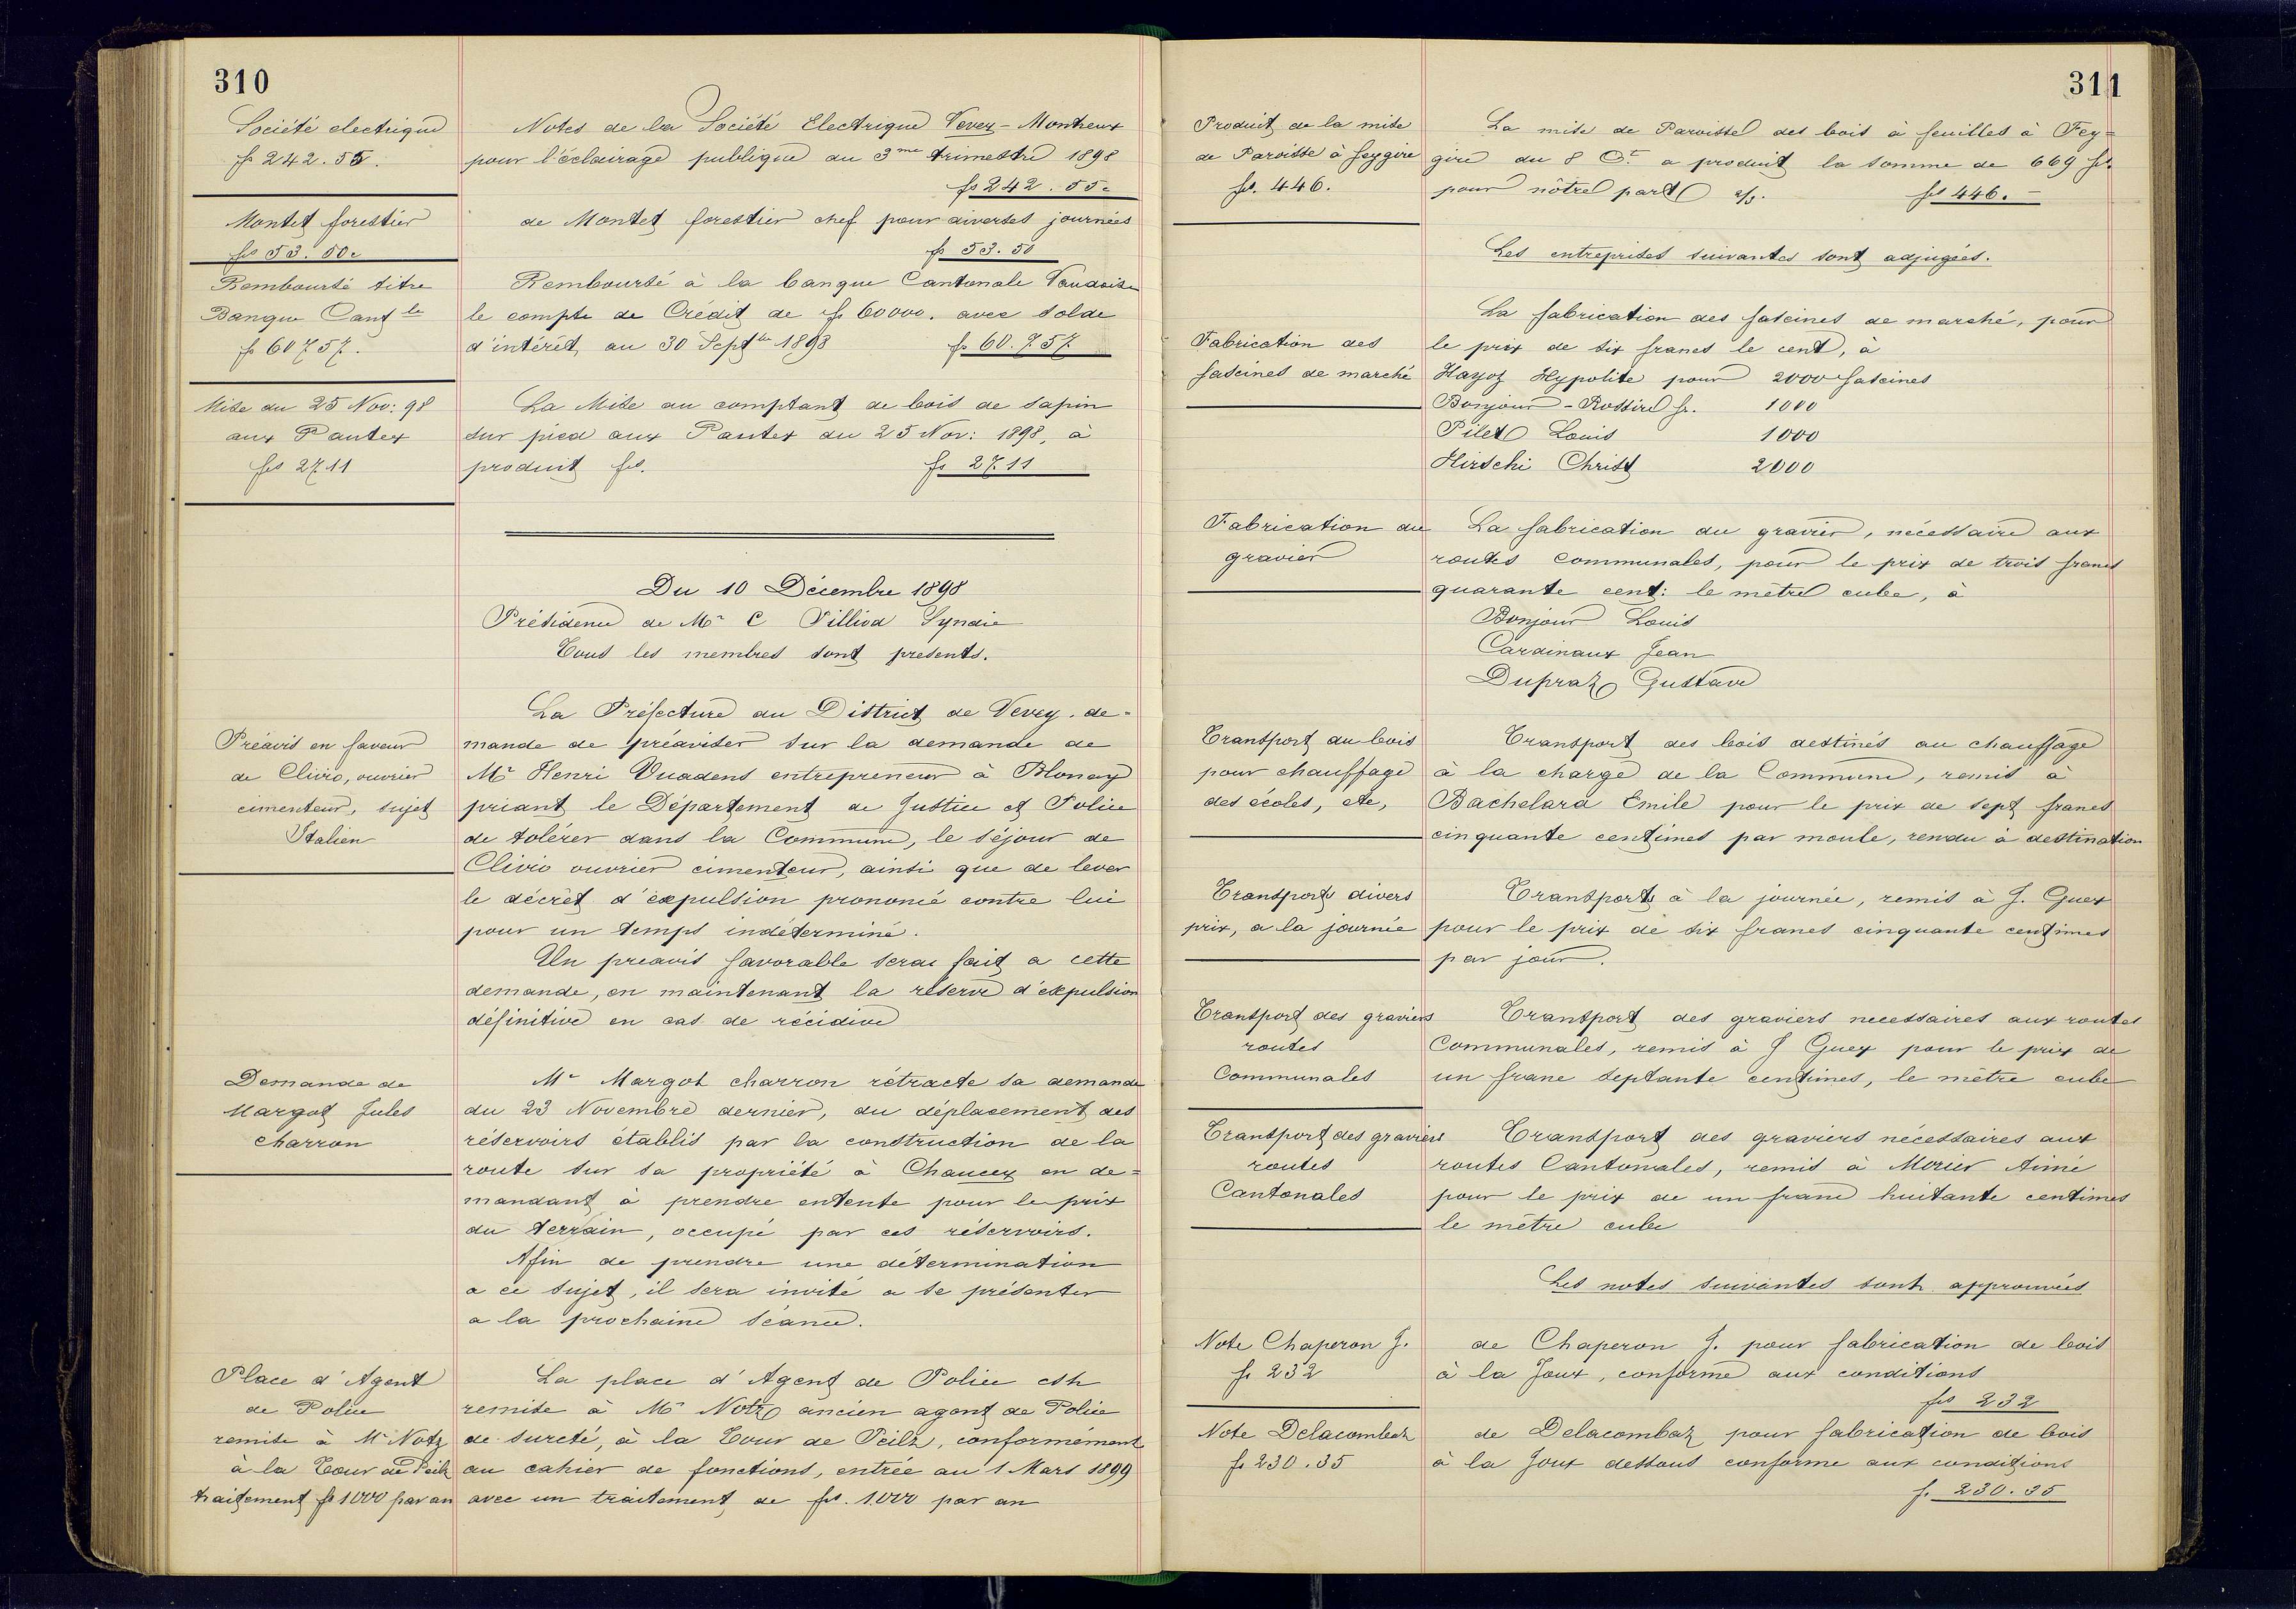 310
Société electrique
fr 242.55.
Notes de la Société Electrique Vevey-Montreux
pour l'éclairage publique du 3me trimestre 1898
frs 242.55c
Montet forestier
frs 53.50c
de Montet forestier chef pour diverses journées
fr 53.50
Remboursé titre
Banque Cantle
fr 60757.
Remboursé à la banque Cantonale Vaudoise
le compte de Crédit de frs 60000. avec solde
d'intérêt au 30 Septbre 1898
fr 60.757
Mise du 25 Nov: 98
aux Pautex
frs 2711
La Mise au comptant de bois de sapin
sur pied aux Pautex du 25 Nov: 1898, à
produit frs.
fr 2711
Du 10 Décembre 1898
Présidence de Mr C Pilliod Syndic
Tous les membres sont presents.
Préavis en faveur
de Clivio, ouvrier
cimenteur, sujet
Italien
La Préfecture du District de Vevey. de-
mande de préaviser sur la demande de
Mr Henri Vuadens entrepreneur à Blonay
priant le Département de Justice et Police
de tolérer dans la Commune, le séjour de
Clivio ouvrier cimenteur, ainsi que de lever
le décrèt d'expulsion prononcé contre lui
pour un temps indéterminé.
Un preavis favorable sera fait a cette
demande, en maintenant la réserve d'expulsion
définitive en cas de récidive
Demande de
Margot Jules
charron
Mr Margot charron rétracte sa demande
du 23 Novembre dernier, du déplacement des
réservoirs établis par la construction de la
route sur sa propriété à Chaucey en de=
mandant à prendre entente pour le prix
du terrain, occupé par ces réservoirs.
Afin de prendre une détermination
a ce sujet, il sera invité a se présenter
a la prochaine séance.
Place d'Agent
de Police
remise à Mr Notz
à la Tour de Peilz
traitement fr 1000 par an
La place d'Agent de Police est
remise à Mr Notz ancien agent de Police
de sureté, à la Tour de Peilz, conformément
au cahier de fonctions, entrée au 1 Mars 1899
avec un traitement de frs. 1000 par an
311
Produit de la mise
de Paroisse à feygire
frs. 446.
La mise de Paroisse des bois à feuilles à Fey=
gire du 8 Ct a produit la somme de 669 frs.
pour nôtre part 2/3.
frs 446.-
Les entreprises suivantes sont adjugées.
Fabrication des
fascines de marché
La fabrication des fascines de marché, pour
le prix de six francs le cent, à
Hayoz Hypolite pour 2000 fascines
Bonjour-Rossire fr. 1000
Pilet Louis 1000
Hirschi Christ 2000
Fabrication du
gravier
La fabrication du gravier, nécessaire aux
routes communales, pour le prix de trois francs
quarante cent: le mètre cube, à
Bonjour Louis
Cardinaux Jean
Dupraz Gustave
Transport du bois
pour chauffage
des écoles, etc,
Transport des bois destinés au chauffage
à la charge de la Commune, remis à
Bachelard Emile pour le prix de sept francs
cinquante centimes par moule, rendu à destination
Transports divers
prix, a la journée
Transports à la journée, remis à J. Guex
pour le prix de six francs cinquante centimes
par jour.
Transport des graviers
routes
Communales
Transport des graviers necessaires aux routes
Communales, remis à J Guex pour le prix de
un franc septante centimes, le mètre cube
Transport des graviers
routes
Cantonales
Transport des graviers nécessaires aux
routes Cantonales, remis à Morier Aimé
pour le prix de un franc huitante centimes
le mètre cube
Les notes suivantes sont approuvées
Note Chaperon J.
fr 232
de Chaperon J. pour fabrication de bois
à la Joux, conforme aux conditions
frs 232
Note Delacombaz
fr 230.35
de Delacombaz pour fabrication de bois
à la Joux dessous conforme aux conditions
f. 230.35